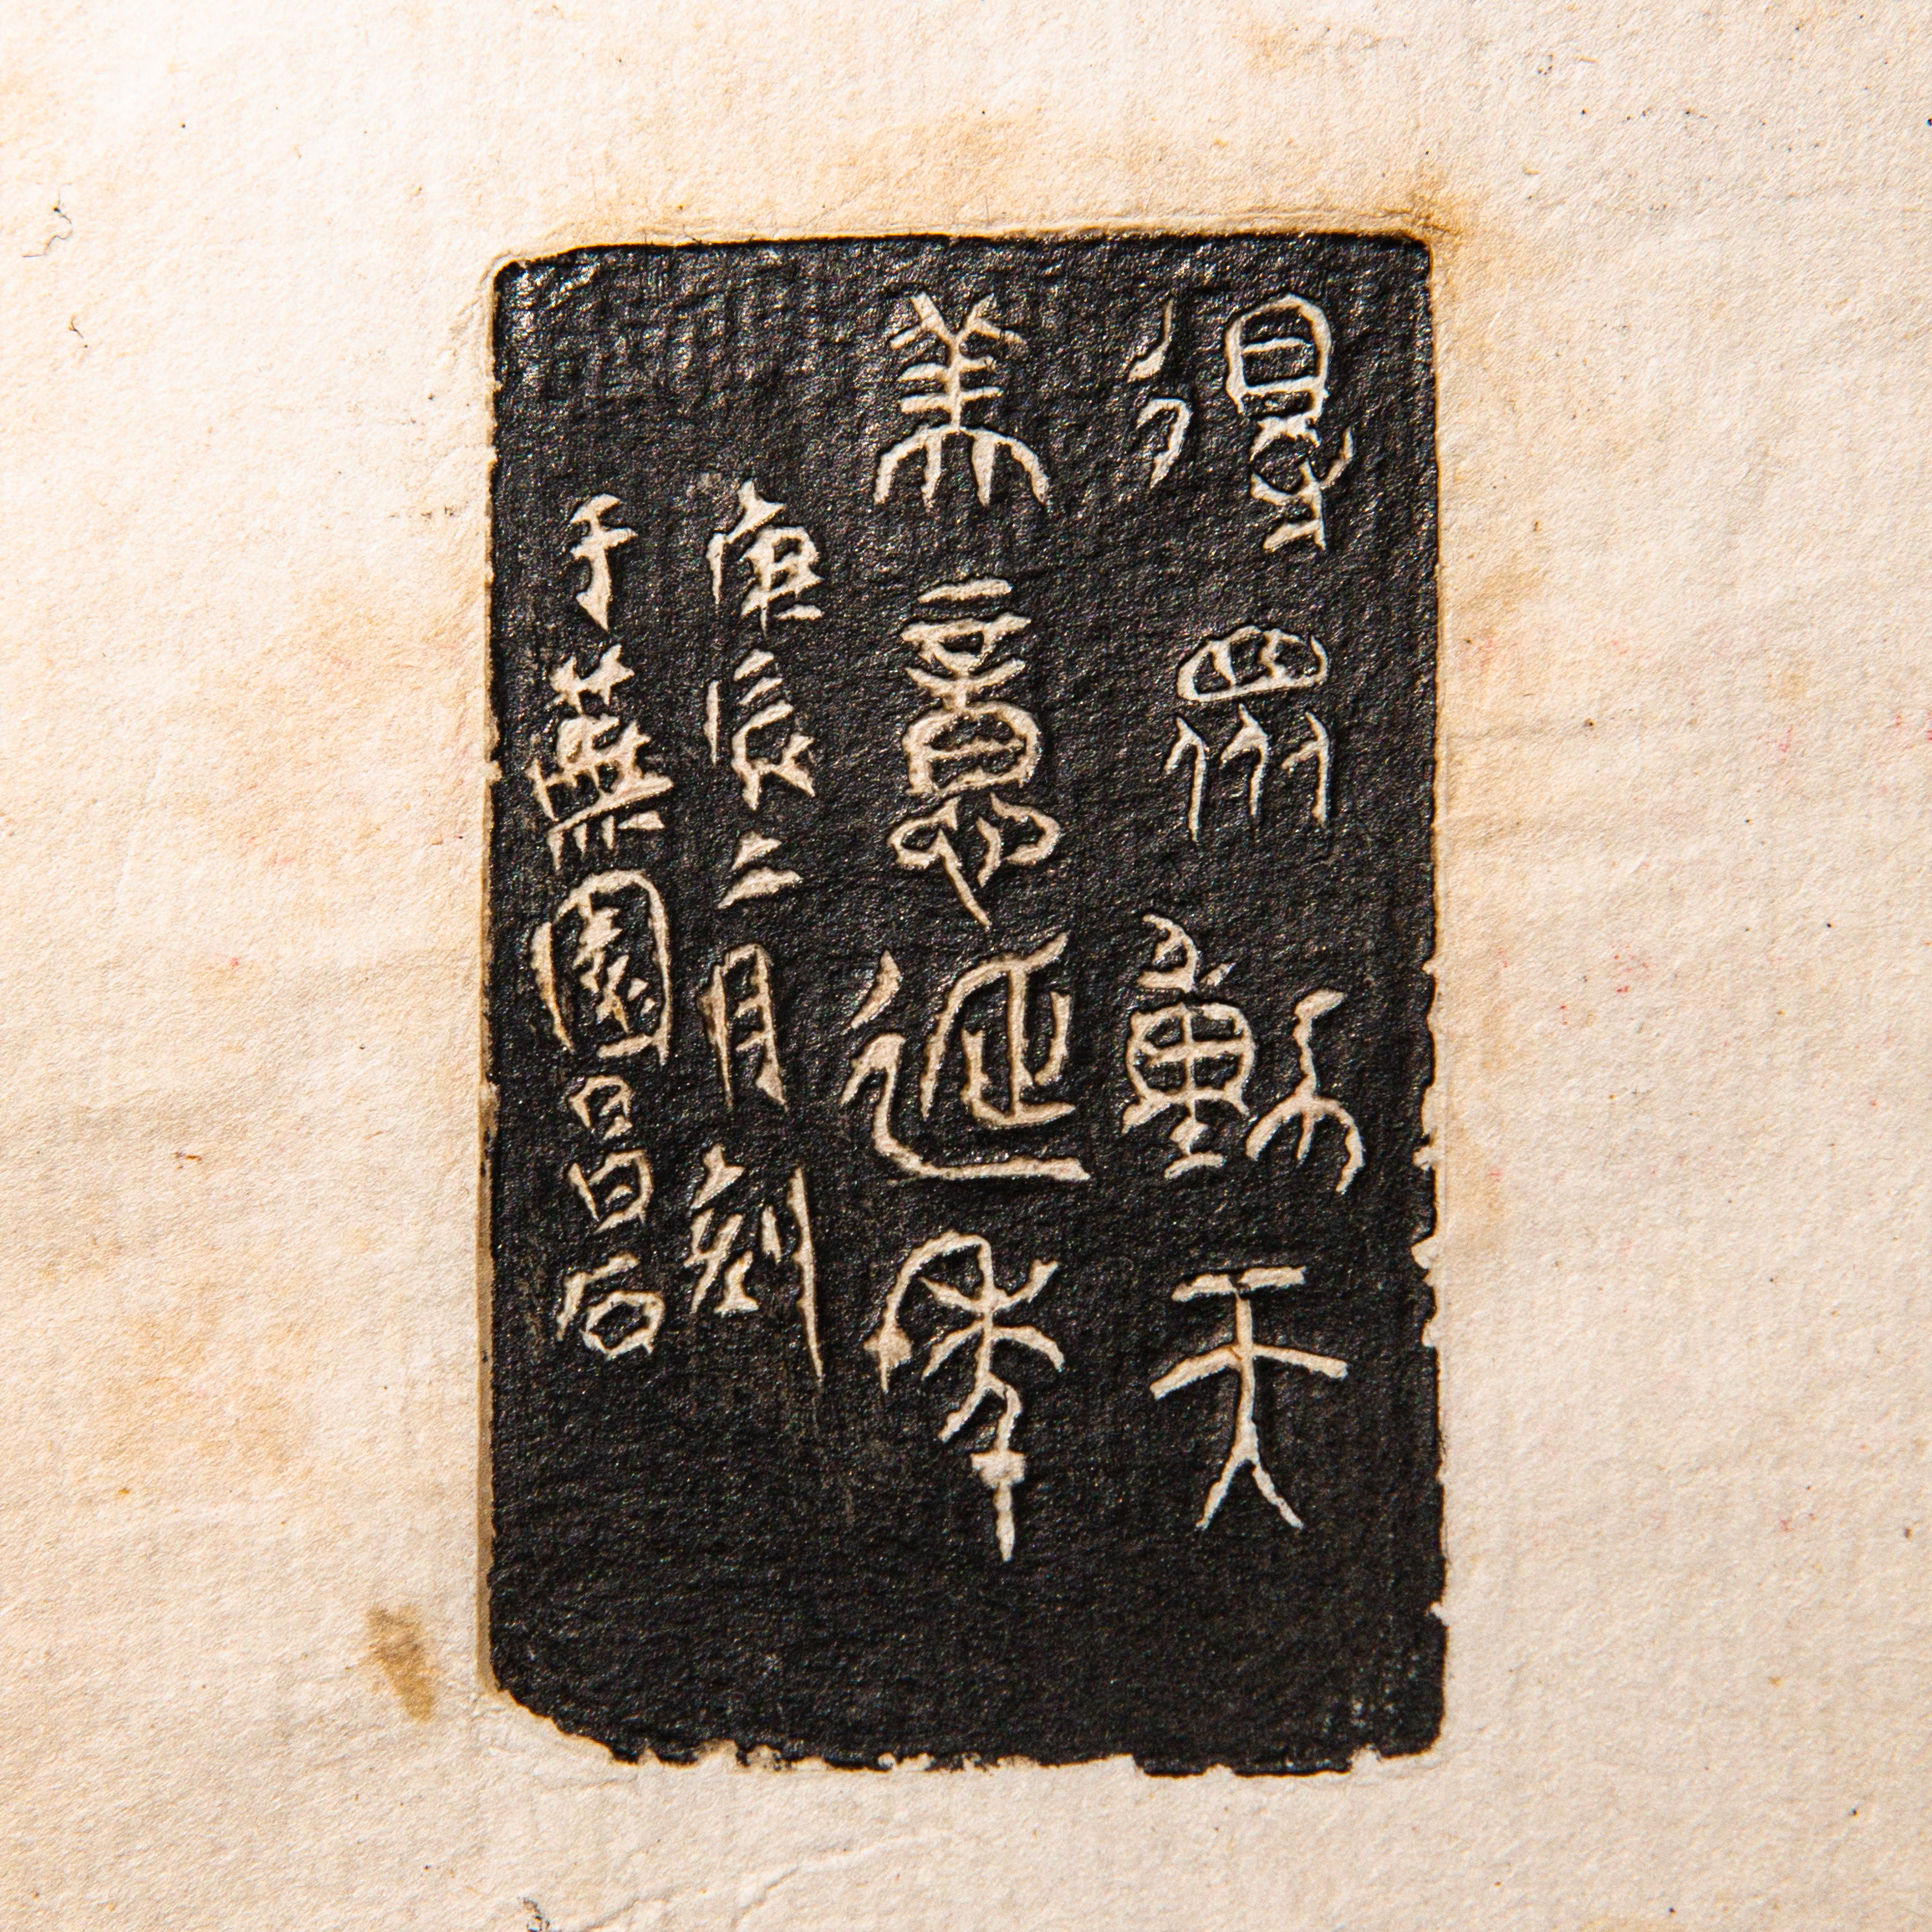 得眾動天
美意延年
庚辰二月刻
于蕪園昌石